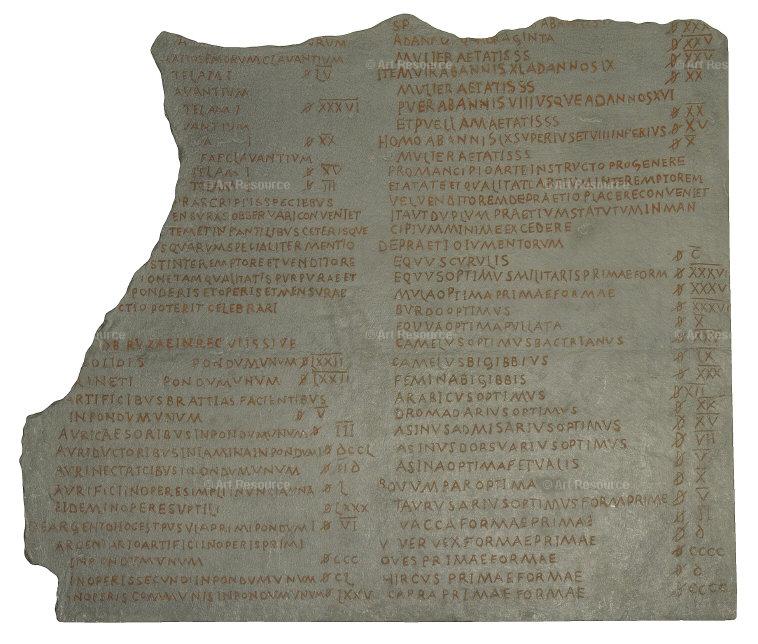 CLAVANTIVM
TELAM I 𐆖 LV
AVANTIVM
TELAM I 𐆖 XXXVI
VANTIVM
I 𐆖 XX
FAE CLAVANTIVM
TELAM I 𐆖 XV
𐆖 III
SPECIEBVS
OBSERVARI CONVENIET
TEM ET IN PANTILIBVS CETERISQVE
SQVARVM SPECIALITER MENTIO
ST INTER EMPTORE ET VENDITORE
IONE TAM QVALITATIS PVRPVRAE ET
PONDERIS ET OPERIS ET MENSVRAE
CTIO POTERIT CELEBRARI
OBRVZAE IN REGVLIS SIVE
SOLIDIS PONDVM VNVM 𐆖 LXXII
NETI PONDVM VNVM 𐆖 LXXII
ARTIFICIBVS BRATTIAS FACIENTIBVS
IN PONDVM VNVM 𐆖 V
AVRI CAESORIBVS IN PONDVM VNVM 𐆖 III
AVRI DVCTORIBVS IN LAMINA IN PONDVM I 𐆖 DCCL
AVRI NECTRICIBVS IN PONDVM VNVM 𐆖
AVRIFICI IN OPERE SIMPLI IN VNCIAM VNA 𐆖 L
EIDEM IN OPERE SVPTILI 𐆖 LXXX
DE ARGENTO HOC EST PVSVLA PRIMI PONDVM I 𐆖 VI
ARGENTARIO ARTIFICI IN OPERIS PRIMI
IN PONDVM VNVM 𐆖 CCC
IN OPERIS SECVNDI IN PONDVM VNVM 𐆖 CL
IN OPERIS COMMVNIS IN PONDVM VNVM 𐆖 LXXV
AD ANN GINTA 𐆖 XXX
MVLIER AETATIS SS 𐆖 XXV
ITEM VIR AB ANNIS XL AD ANNOS LX 𐆖 XXV
MVLIER AETATIS SS 𐆖 XX
PVER AB ANNIS VIII VSQVE AD ANNOS XVI
ET PVELLAM AETATIS SS 𐆖 XX
HOMO AB ANNIS LX SVPERIVS ET VIII INFERIVS 𐆖 XV
MVLIER AETATIS SS 𐆖 X
PRO MANCIPIO ARTE INSTRVCTO PRO GENERE
ET AETATE ET QVALITAT ARTIVM INTER EMPTOREM
VEL VENDITOREM DE PRAETIO PLACERE CONVENIET
ITA VT DVPLVM PRAETIVM STATVTVM IN MAN
CIPIVM MINIME EXCEDERE
DE PRAETIO IVMENTORVM
EQVVS CVRVLIS 𐆖 C
EQVVS OPTIMVS MILITARIS PRIMAE FORM 𐆖 XXXVI
MVLA OPTIMA PRIMAE FORMAE 𐆖 XXXVI
BVRDO OPTIMVS 𐆖 XXXVI
EQVVA OPTIMA PVLLATA 𐆖 X
CAMELVS OPTIMVS BACTRIANVS
CAMELVS BIGIBBIVS 𐆖 LX
FEMINA BIGIBBIS 𐆖 XXX
ARABICVS OPTIMVS 𐆖 XII
DROMADARIVS OPTIMVS 𐆖 XX
ASINVS ADMISARIVS OPTIMVS 𐆖 XV
ASINVS DORSVARIVS OPTIMVS 𐆖 VII
ASINA OPTIMA FETVALIS 𐆖 V
BOVVM PAR OPTIMA 𐆖 X
TAVRVS ARIVS OPTIMVS FORM PRIME 𐆖 V
VACCA FORMAE PRIMAE 𐆖 II
VERVEX FORMAE PRIMAE 𐆖 D
OVES PRIMAE FORMAE 𐆖 CCCC
HIRCVS PRIMAE FORMAE 𐆖 D
CAPRA PRIMAE FORMAE 𐆖 CCCC
© Art Resource